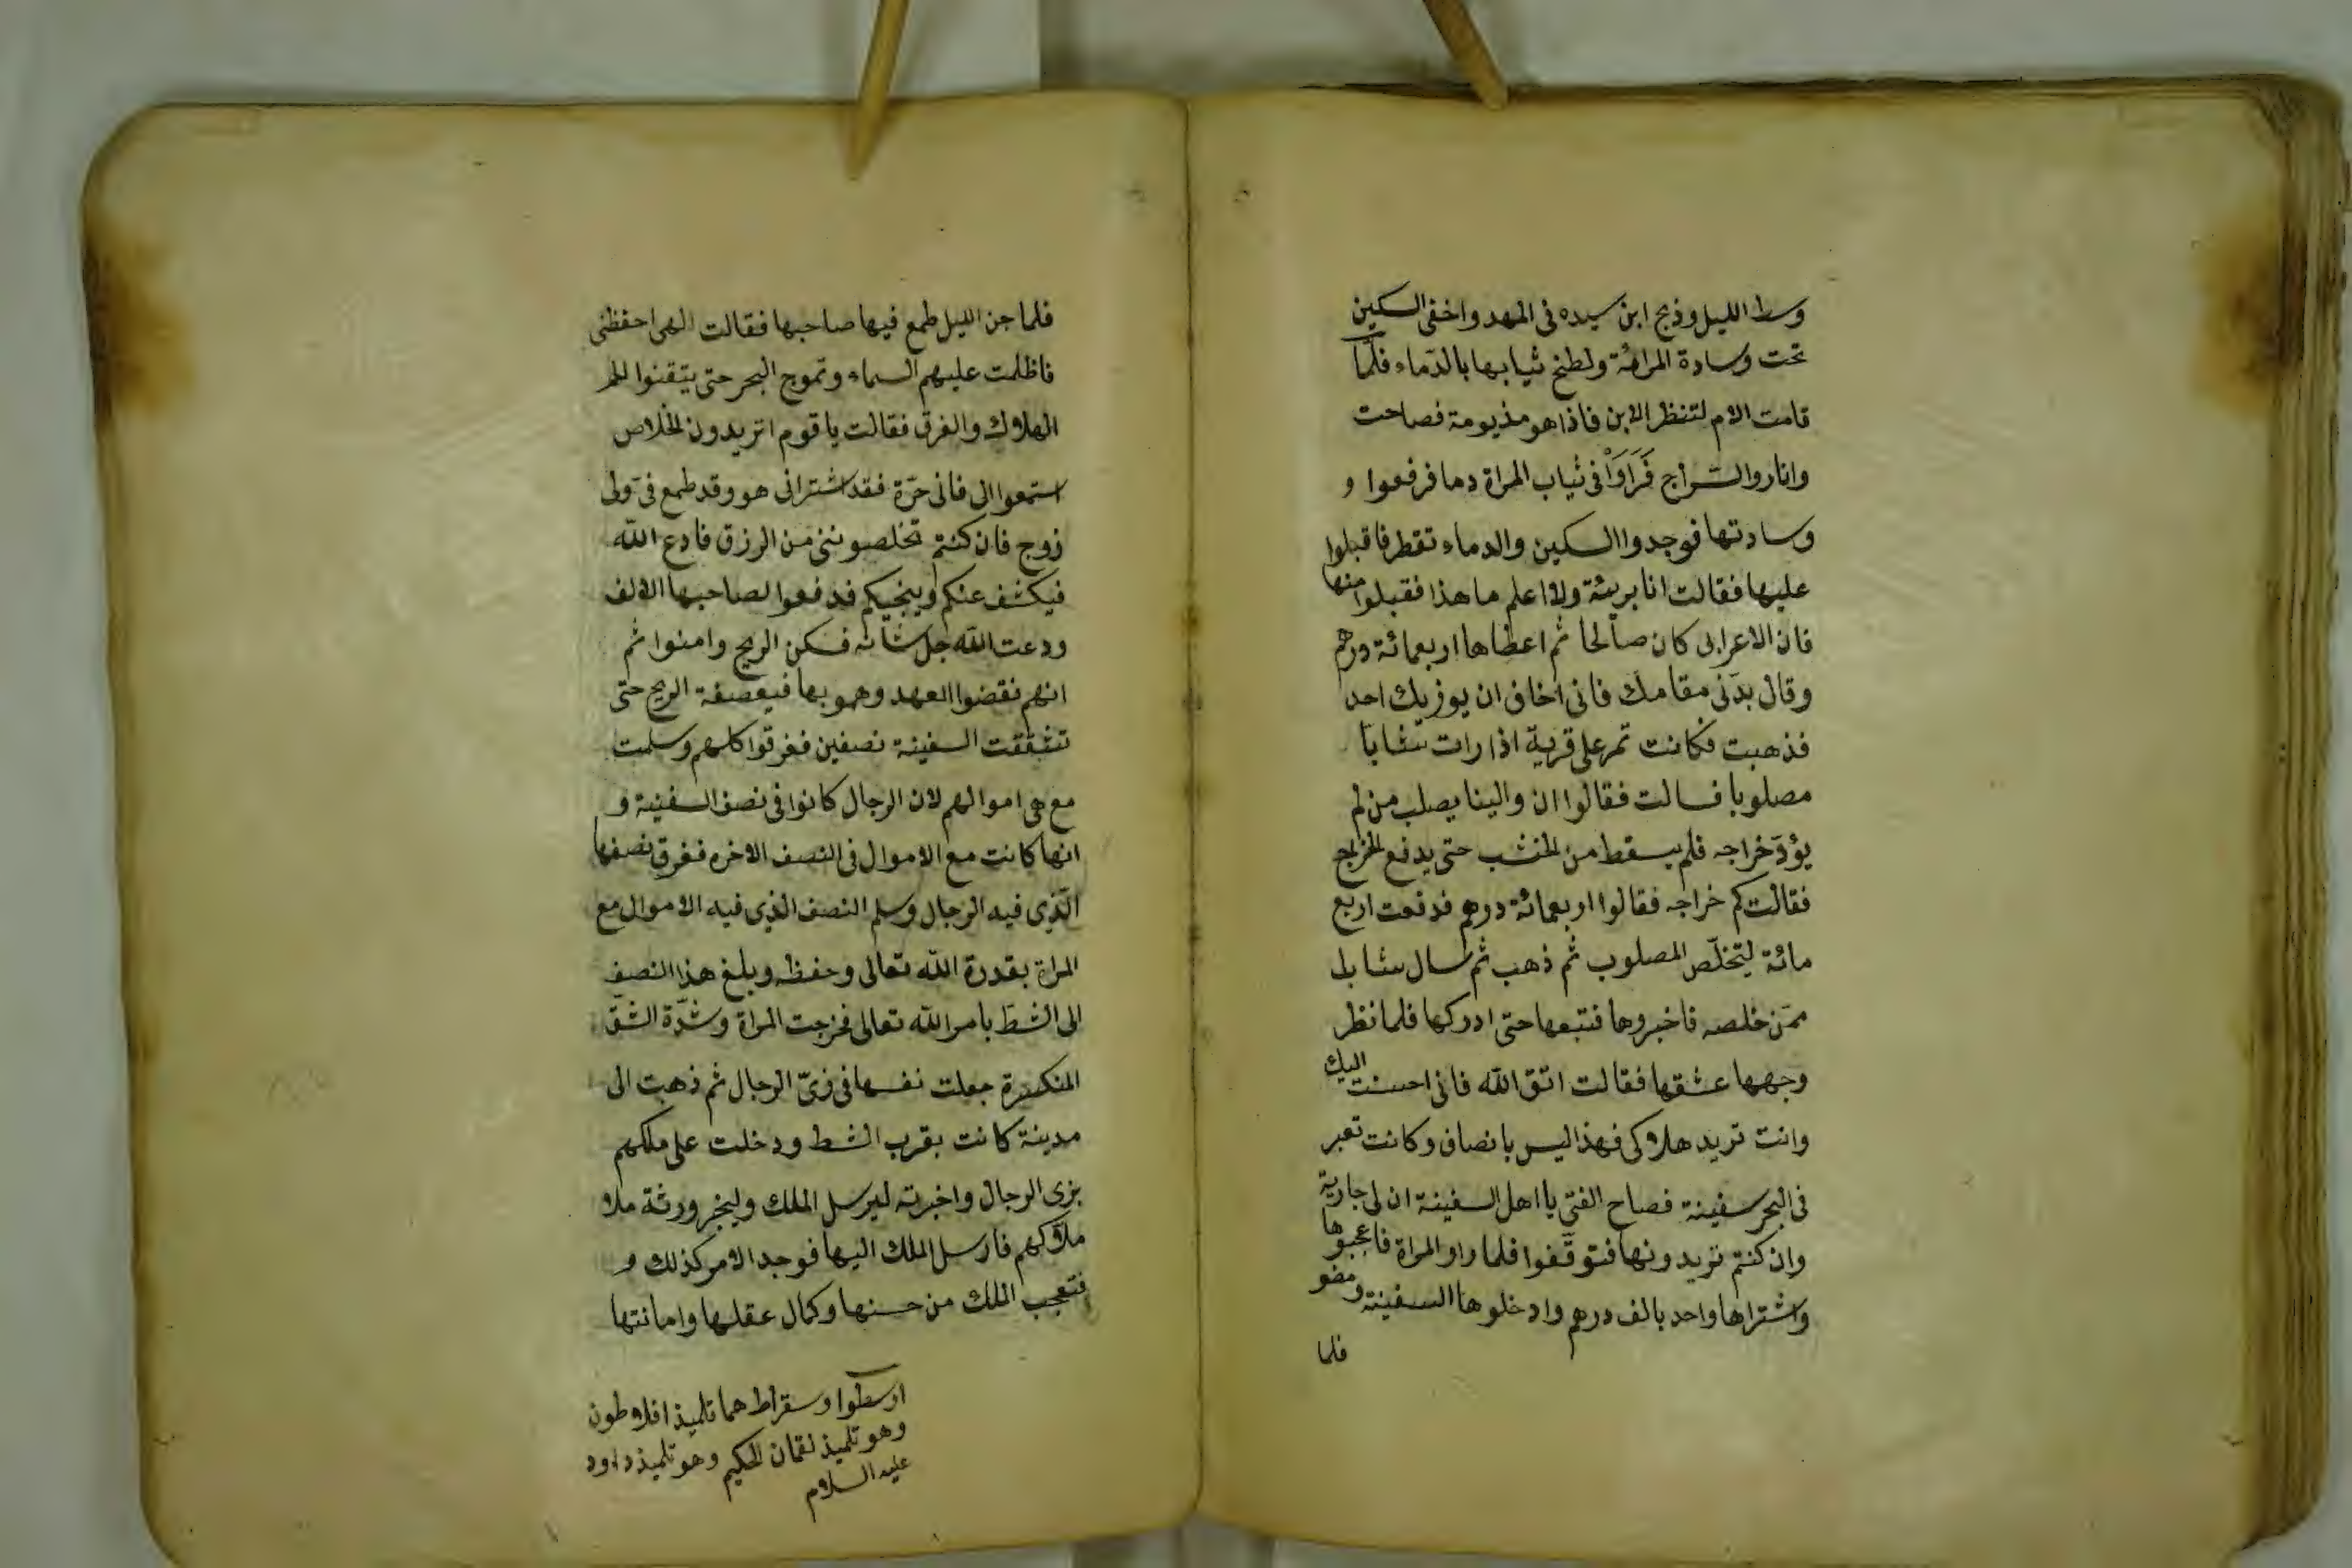 وسط الليل وذبح ابن سيده فى المهد واخفى السكين
تحت وسادة المراة ولطخ ثيابها بالدماء فلمّا
قامت الام لتنظر الابن فاذا هو مذبومة فصاحت
واناروا السراج فَرَاَوْا فى ثياب المراة دما فرفعوا و
وسادتها فوجدوا السكين والدماء تقطر فاقبلوا
عليها فقالت انا بريئة ولا اعلم ما هذا فقبلوا منها
فان الاعرابى كان صالحا ثم اعطاها اربعمائة درهم
وقال بدّلى مقامك فانى اخاف ان يوزيك احد
فذهبت فكانت تمر على قرية اذا رات شابا
مصلوبا فسالت فقالوا ان والينا يصلب من لم
يؤدّ خراجه فلم يسقط من الخشب حتى يدفع الخراج
فقالت كم خراجه فقالوا اربعمائة درهم فدفعت اربع
مائة ليتخلّص المصلوب ثم ذهب ثم سال شابا
ممّن خلصه فاخبروها فتبعها حتى ادركها فلما نظر
وجهها عشقها فقالت اتق الله فانى احسنت اليك
وانت تريد هلاكى فهذا ليس بانصاف وكانت تعبر
فى البحر سفينة فصاح الفتى يا اهل السفينة ان لى جارية
وان كنتم تريدونها فتوقّفوا فلما راو المراة فاعجبوها
واشتراها واحد بالف درهم وادخلوها السفينة ومضو
فلما
فلما جن الليل طمع فيها صاحبها فقالت الهى احفظنى
فاظلمت عليهم السماء وتموج البحر حتى يتقنوا
الهلاك والغرق فقالت يا قوم اتريدون الخلاص
استمعوا الى فانى حرّة فقد اشترانى هو وقد طمع فىّ ولى
زوج فان كنتم تخلصوننى من الرزق فادع الله
فيكشف عنكم وينجيكم فدفعوا لصاحبها الالف
ودعت الله جل شانه فسكن الريح وامنوا ثم
انهم نقضوا العهد وهمو بها فيعصفة الريح حتى
تشققت السفينة نصفين فغرقوا كلهم وسلمت
مع هى اموالهم لان الرجال كانوا فى نصف السفينة و
انها كانت مع الاموال فى النصف الاخره فغرق نصفها
الّذى فيه الرجال وسلم النصف الذى فيه الاموال مع
المراة بقدرة الله تعالى وحفظه وبلغ هذا النصف
الى الشطّ بامر الله تعالى فخرجت المراة وشدّة الشقّ
المنكسرة جعلت نفسها فى زىّ الرجال ثم ذهبت الى
مدينة كانت بقرب الشط ودخلت على ملكهم
بزى الرجال واخبرته ليرسل الملك وليخبر ورثة ملا
ملاكهم فارسل الملك اليها فوجد الامر كذلك و
فتعجب الملك من حسنها وكمال عقلها وامانتها
ارسطوا وسقراط هما تلميذ افلاطون
وهو تلميذ لقمان الحكيم وهو تلميذ داود
عليه السلام